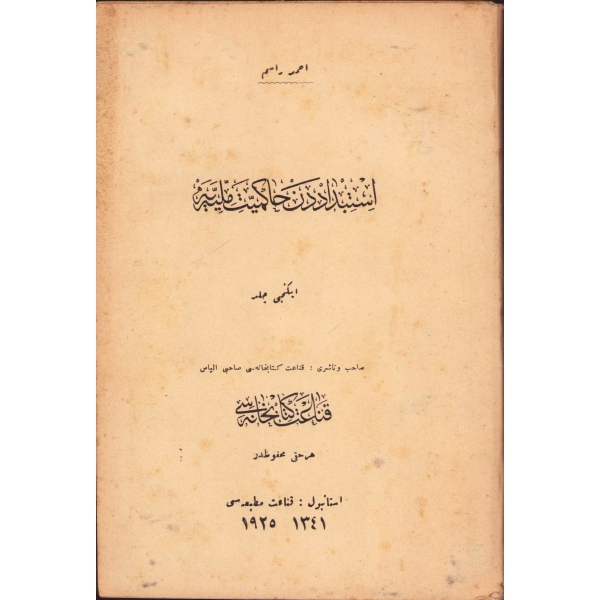 احمد راسم
استبداددن حاكميت ملیه یه
ایكنجی جلد
صاحب و ناشری : قناعت كتابخانه‌سی صاحبی الیاس
قناعت كتابخانه‌سی
هر حقی محفوظدر
استانبول : قناعت مطبعه‌سی
۱۳٤۱ ۱۹۲٥